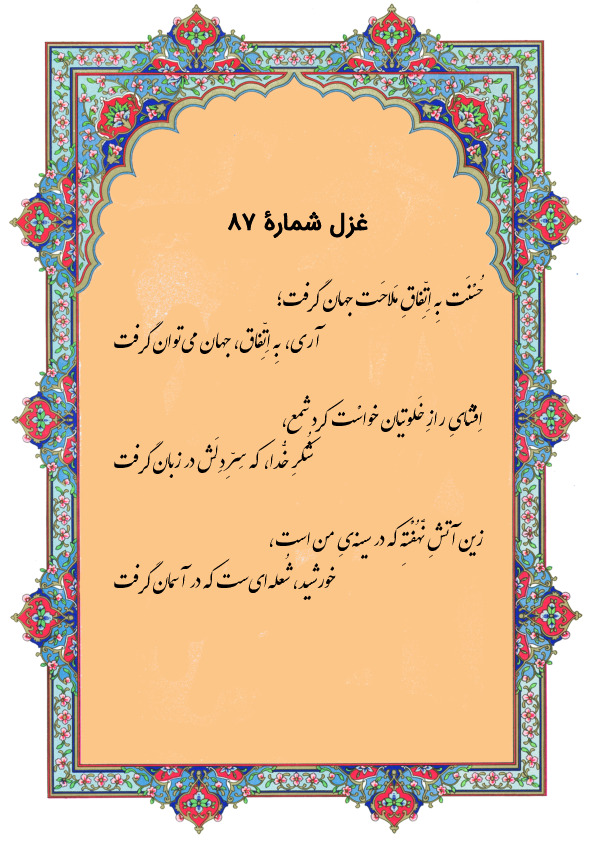 غزل شمارهٔ ۸۷
حُسنَت بِه اِتِّفاقِ مَلاحَت جهان گرفت؛
آری، بِه اِتِّفاق، جهان می‌توان گرفت
اِفشایِ رازِ خَلوتیان خواسْت کرد شمع،
شُکرِ خُدا، که سِرِّ دِلَش در زبان گرفت
زین آتشِ نَهُفْتِه که در سینه‌یِ من است،
خورشید، شُعله‌ای‌ست که در آسمان گرفت